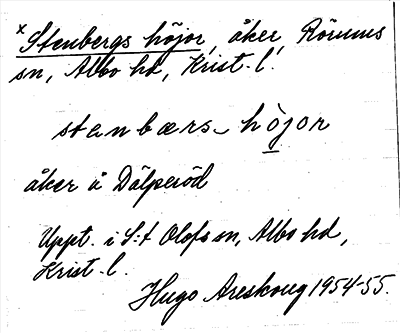 × Stenbergs höjor, åker, Rörums
sn, Albo hd, Krist. l.
stanbærs- hòjor
åker å Dälperöd
Uppt. i S:t Olofs sn, Albo hd,
Krist. l.
Hugo Areskoug 1954-55.